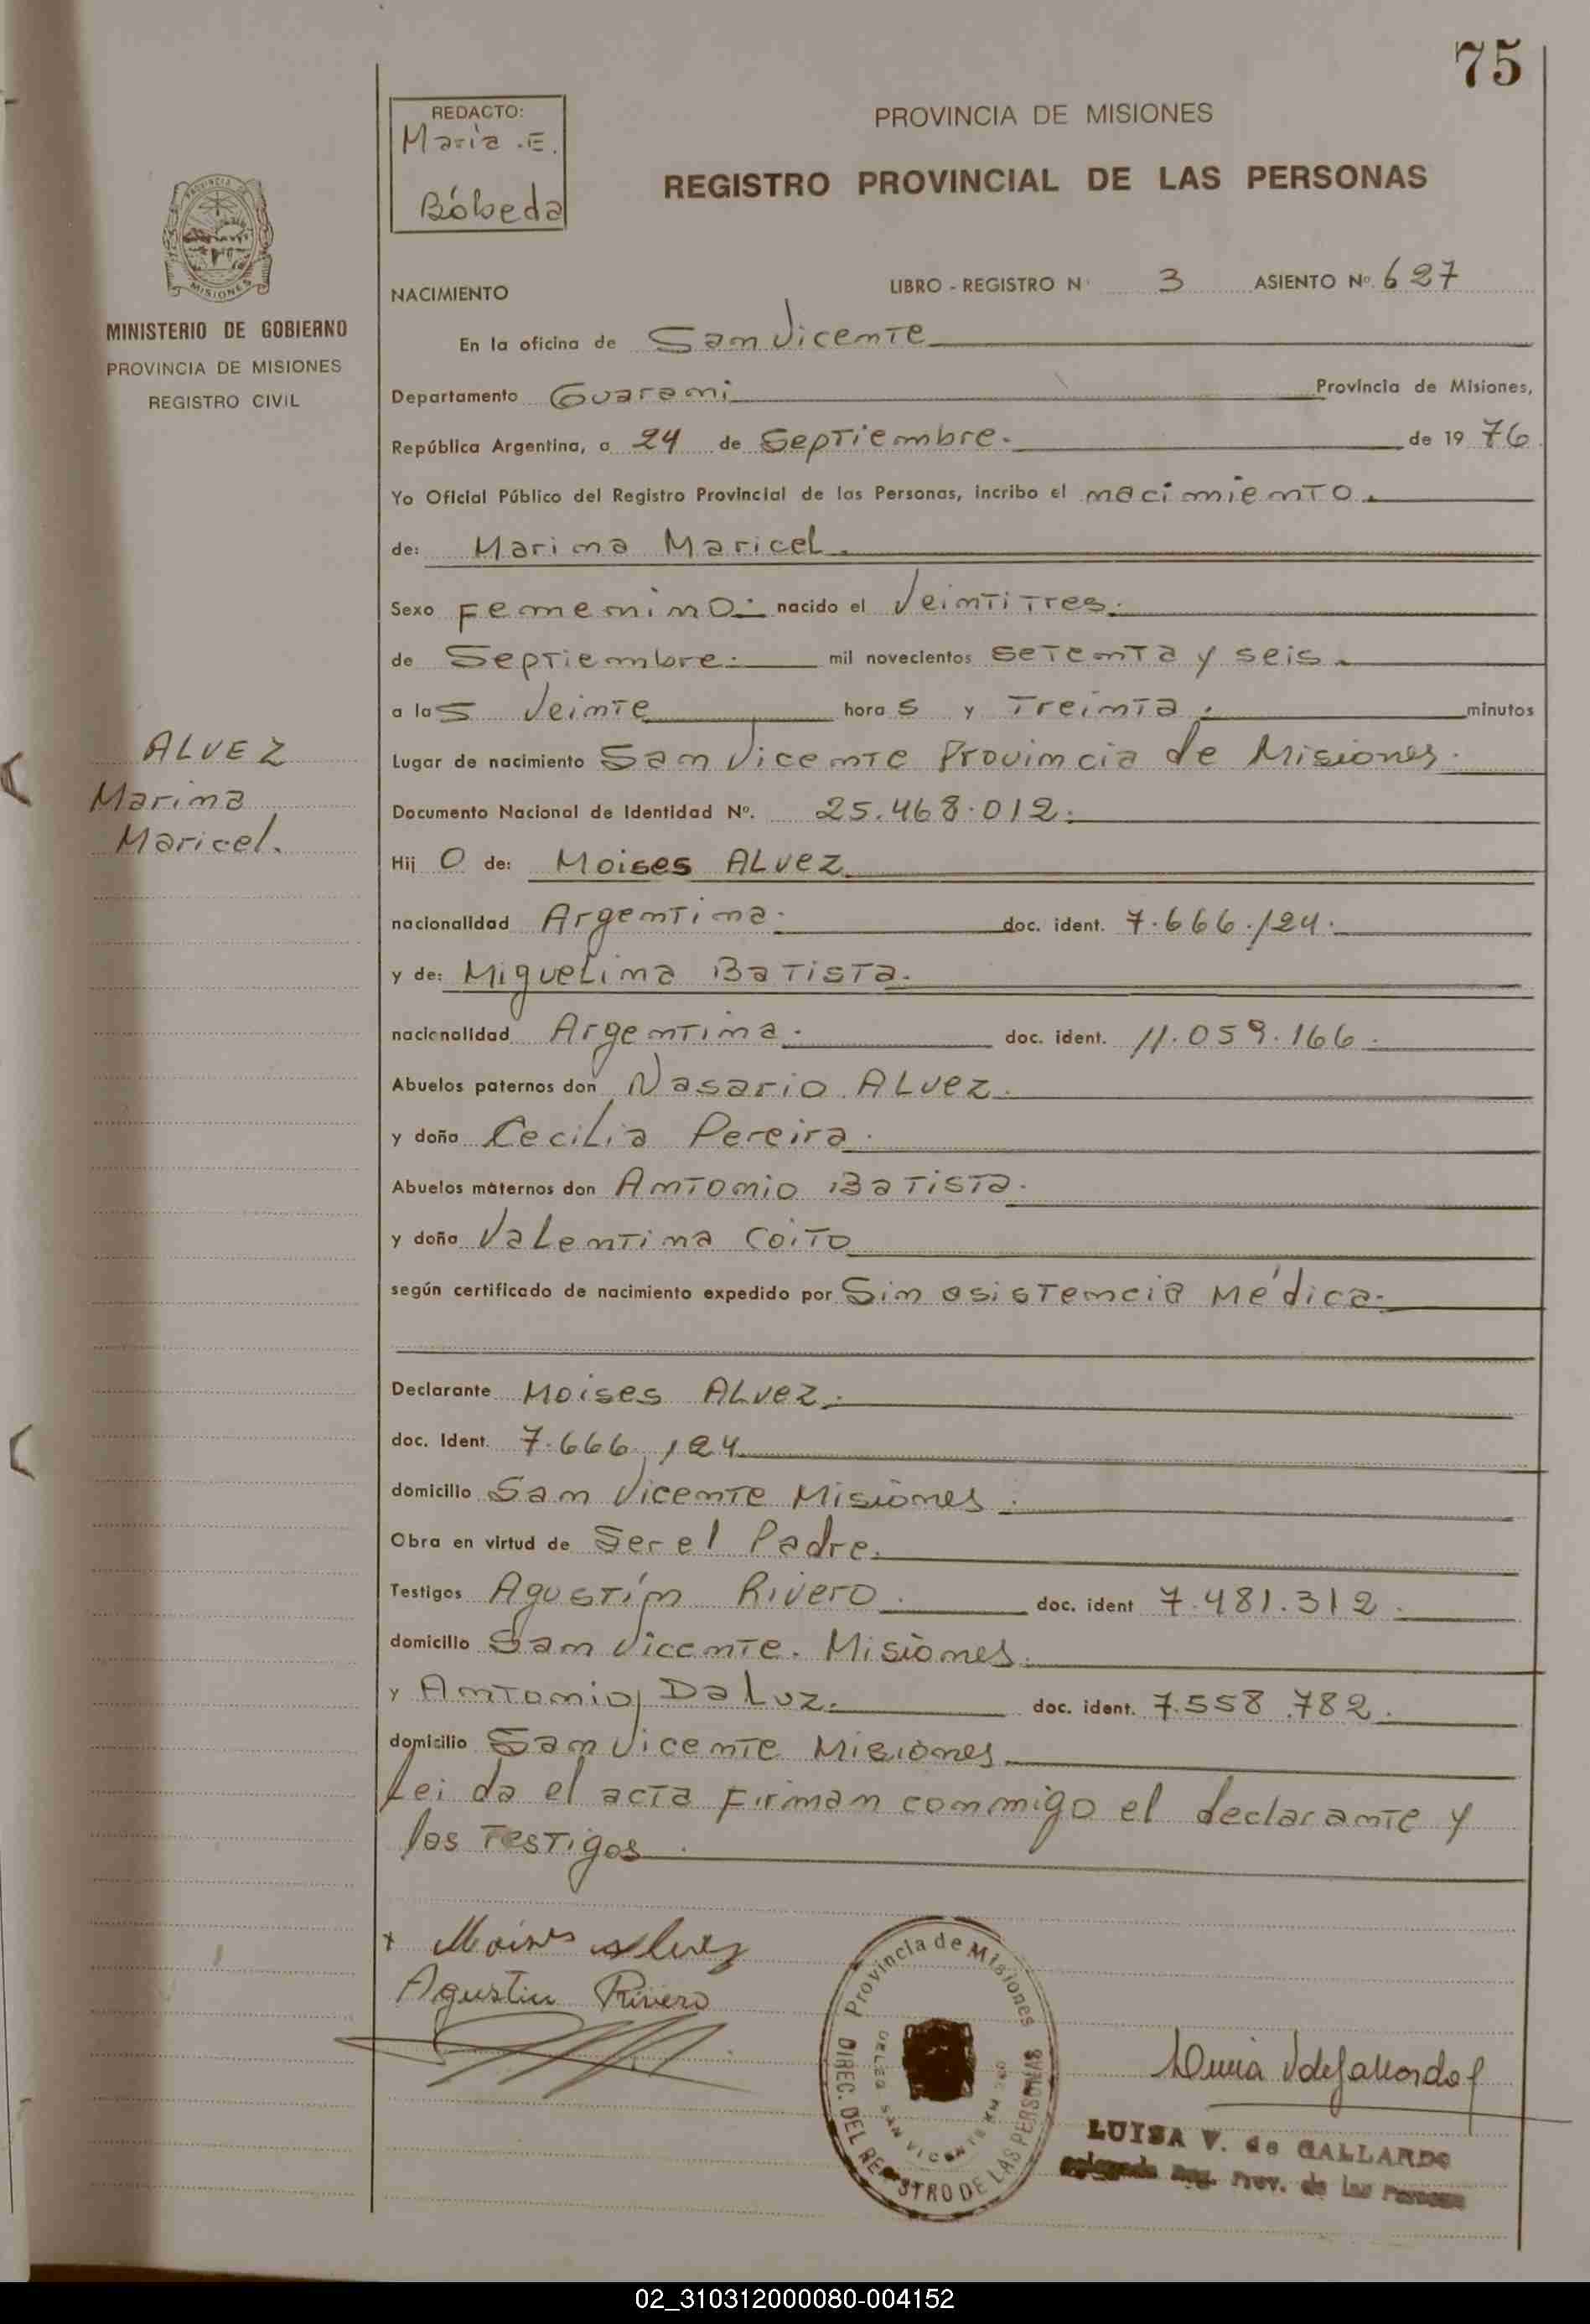 75
REDACTO:
María .E.
Bóbeda
PROVINCIA DE MISIONES
REGISTRO PROVINCIAL DE LAS PERSONAS
PROVINCIA DE
MISIONES
MINISTERIO DE GOBIERNO
PROVINCIA DE MISIONES
REGISTRO CIVIL
NACIMIENTO
LIBRO - REGISTRO N° 3 ASIENTO Nº. 627
En la oficina de San Vicente
Departamento Guarani Provincia de Misiones,
República Argentina, a 24 de Septiembre. de 19 76.
Yo Oficial Público del Registro Provincial de las Personas, incribo el nacimiento.
de: Marina Maricel.
Sexo Femenino.- nacido el Veintitres.
de Septiembre.- mil novecientos setenta y seis.
a las Veinte horas y Treinta. minutos
Lugar de nacimiento San Vicente Provincia de Misiones.
ALVEZ
Marina
Maricel.
Documento Nacional de Identidad Nº. 25.468.012.
Hij O de: Moises ALVEZ
nacionalidad Argentina. doc. ident. 7.666.124.
y de: Miguelina Batista.
nacionalidad Argentina. doc. ident. 11.059.166.
Abuelos paternos don Nasario ALVEZ.
y doña Cecilia Pereira.
Abuelos maternos don Antonio Batista.
y doña Valentina Coito
según certificado de nacimiento expedido por Sin asistencia Médica.
Declarante Moises ALVEZ.
doc. Ident. 7.666.124
domicilio San Vicente Misiones.
Obra en virtud de Ser el Padre.
Testigos Agustín Rivero. doc. ident 7.481.312.
domicilio San Vicente. Misiones.
y Antonio Da Luz. doc. ident. 7.558.782.
domicilio San Vicente Misiones
Leida el acta firman conmigo el declarante y
los Testigos.
x Moises Alvez
Agustin Rivero
Provincia de Misiones
DIREC. DEL REGISTRO DE LAS PERSONAS
DELEG SAN VICENTE
LUISA V. de GALLARDO
Reg. Prov. de las Personas
02_310312000080-004152